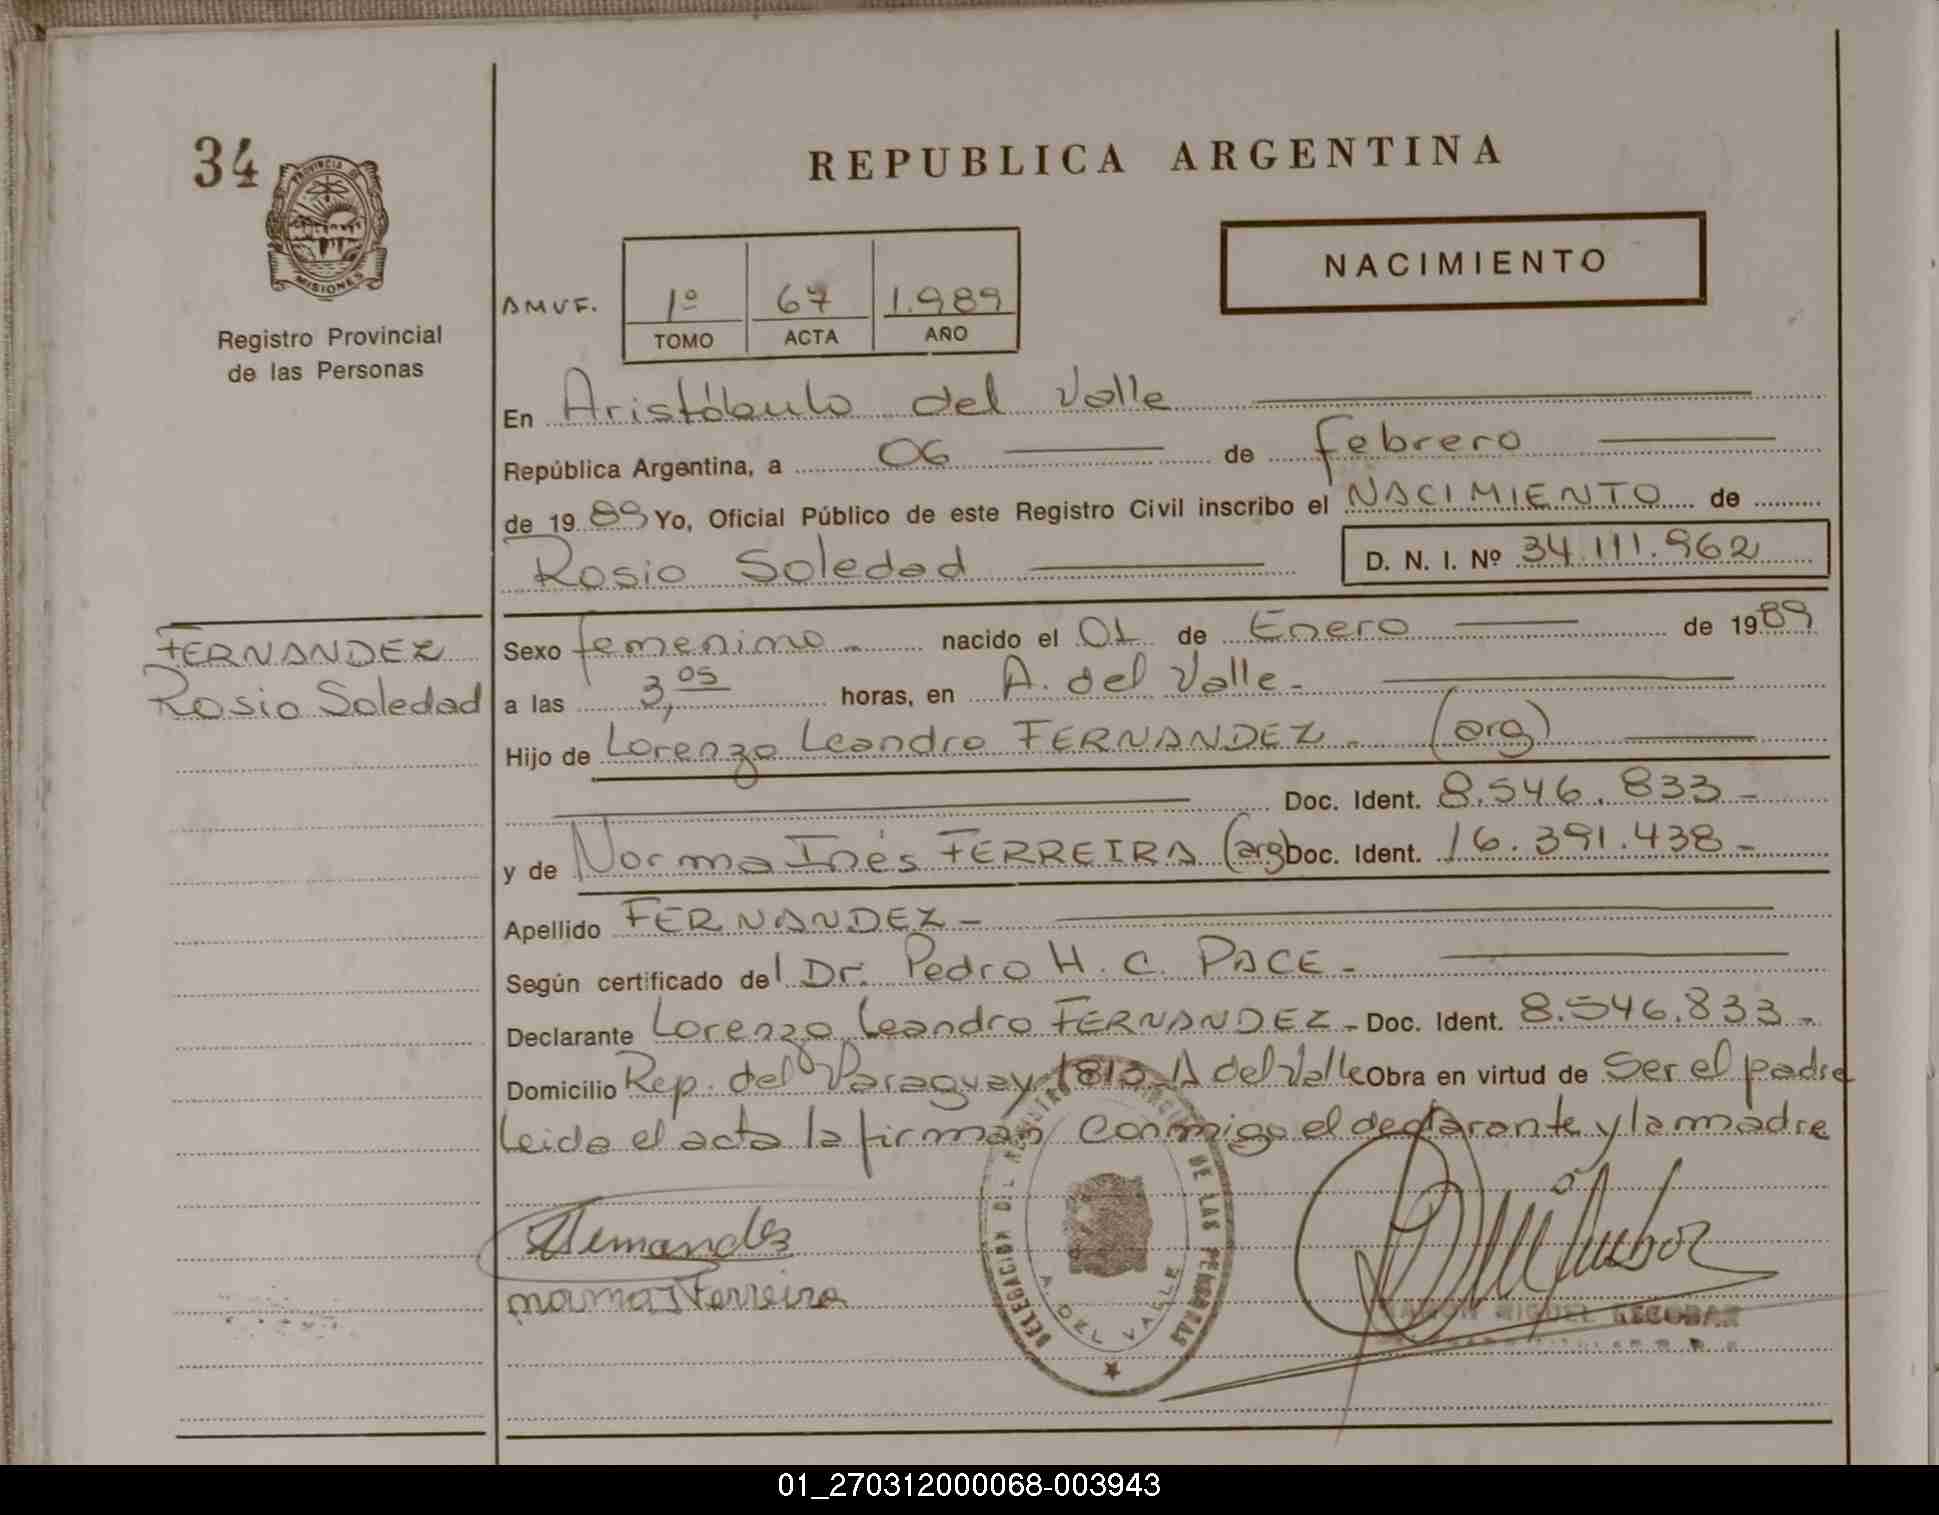 34
PROVINCIA DE
MISIONES
Registro Provincial
de las Personas
REPUBLICA ARGENTINA
NACIMIENTO
AMVF.
1º 67 1.989
TOMO ACTA AÑO
En Aristóbulo del Valle
República Argentina, a 06 de febrero
de 1989 Yo, Oficial Público de este Registro Civil inscribo el NACIMIENTO de
Rosio Soledad D. N. I. Nº 34.111.962
FERNANDEZ
Rosio Soledad
Sexo femenino nacido el 01 de Enero de 1989
a las 3,05 horas, en A. del Valle-
Hijo de Lorenzo Leandro FERNANDEZ - (arg)
Doc. Ident. 8.546.833-
y de Norma Inés FERREIRA (arg) Doc. Ident. 16.391.438-
Apellido FERNANDEZ-
Según certificado del Dr. Pedro H. C. PACE-
Declarante Lorenzo Leandro FERNANDEZ - Doc. Ident. 8.546.833-
Domicilio Rep. del Paraguay 1813 A del Valle Obra en virtud de Ser el padre
Leida el acta la firman conmigo el declarante y la madre
DELEGACION DEL REGISTRO PROVINCIAL DE LAS PERSONAS
A. DEL VALLE
Ferreira
RAMON MIGUEL ESCOBAR
01_270312000068-003943